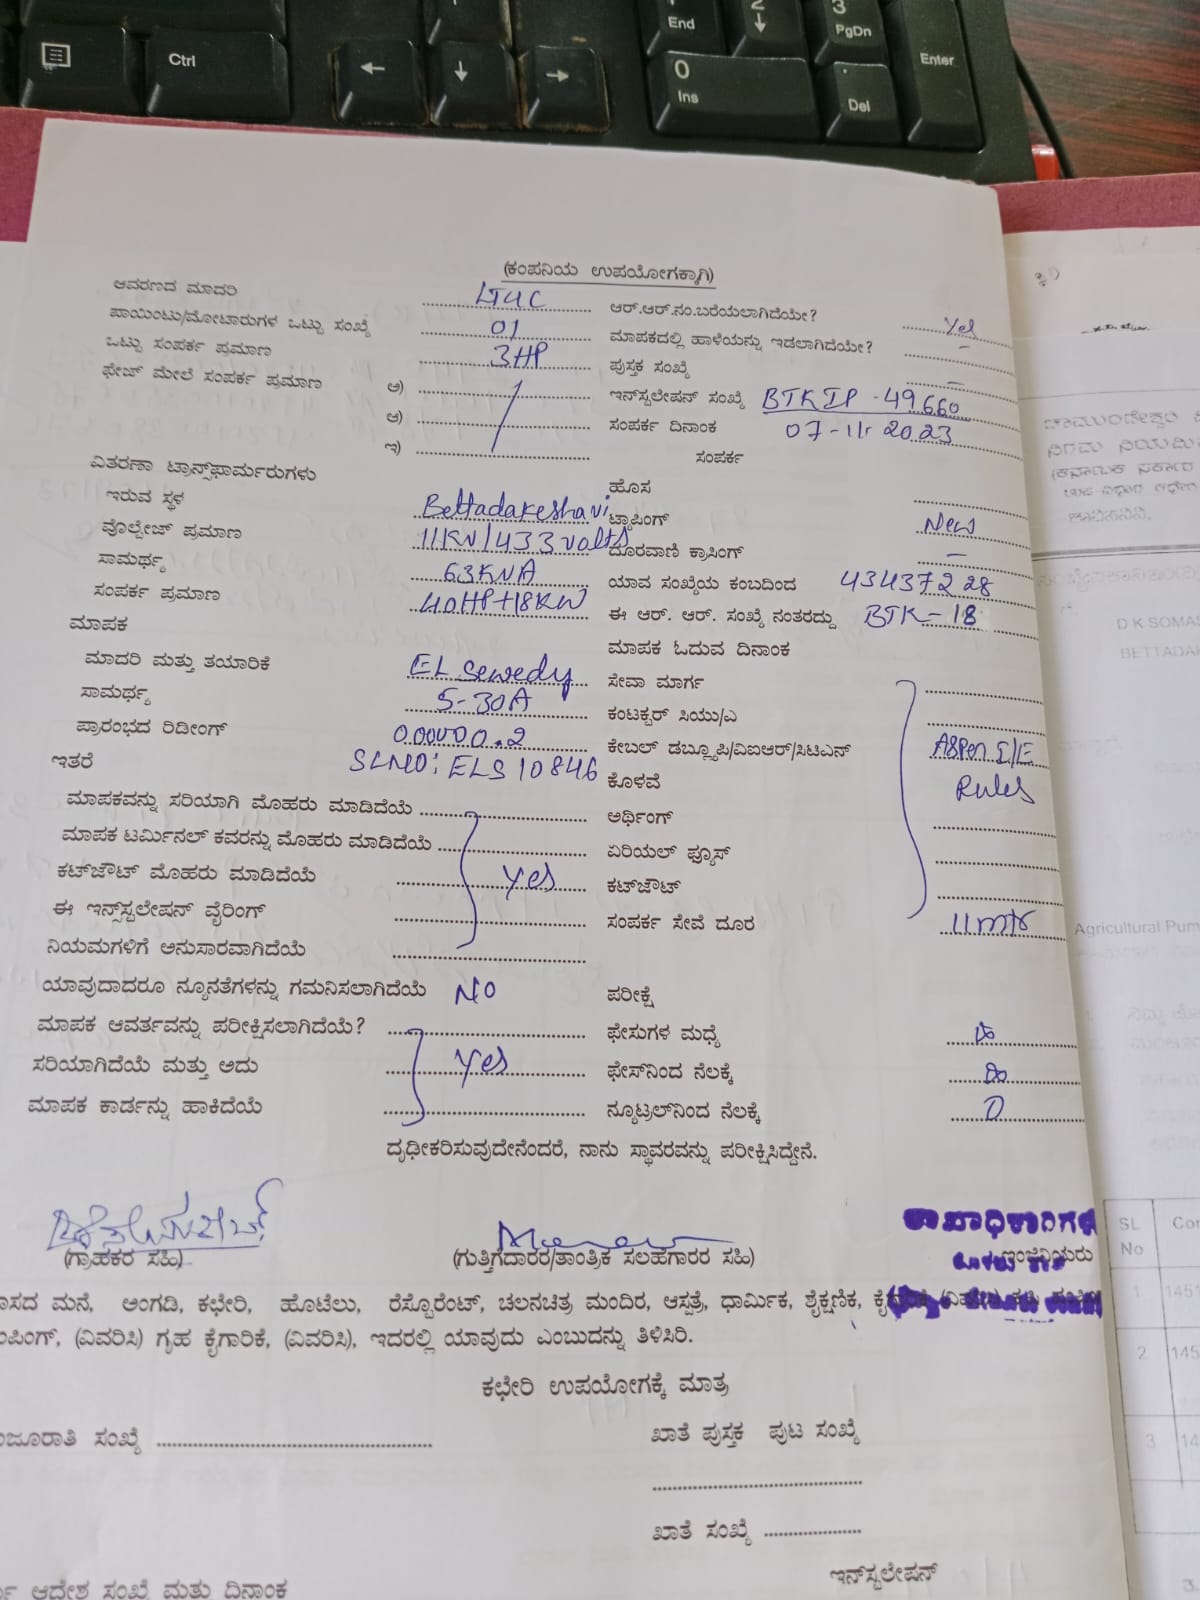 Ctrl
End
2
3
PgDn
Enter
0
Ins
.
Del
(ಕಂಪನಿಯ ಉಪಯೋಗಕ್ಕಾಗಿ)
ಆವರಣದ ಮಾದರಿ
ಪಾಯಿಂಟು/ಮೋಟಾರುಗಳ ಒಟ್ಟು ಸಂಖ್ಯೆ 01
ಒಟ್ಟು ಸಂಪರ್ಕ ಪ್ರಮಾಣ 3HP
ಫೇಜ್ ಮೇಲೆ ಸಂಪರ್ಕ ಪ್ರಮಾಣ ಅ)
ಆ)
ಇ)
ವಿತರಣಾ ಟ್ರಾನ್ಸ್‌ಫಾರ್ಮರುಗಳು
ಇರುವ ಸ್ಥಳ Bettadakeshavi
ವೊಲ್ಟೇಜ್ ಪ್ರಮಾಣ 11KV/433volts
ಸಾಮರ್ಥ್ಯ 63KVA
ಸಂಪರ್ಕ ಪ್ರಮಾಣ 40HP+18KW
ಮಾಪಕ
ಮಾದರಿ ಮತ್ತು ತಯಾರಿಕೆ EL Sewedy
ಸಾಮರ್ಥ್ಯ 5-30A
ಪ್ರಾರಂಭದ ರಿಡೀಂಗ್ 00000.2
ಇತರೆ SLNO: ELS10846
ಮಾಪಕವನ್ನು ಸರಿಯಾಗಿ ಮೊಹರು ಮಾಡಿದೆಯೆ
ಮಾಪಕ ಟರ್ಮಿನಲ್ ಕವರನ್ನು ಮೊಹರು ಮಾಡಿದೆಯೆ
ಕಟ್‌ಔಟ್ ಮೊಹರು ಮಾಡಿದೆಯೆ Yes
ಈ ಇನ್ಸ್‌ಸ್ಟಲೇಷನ್ ವೈರಿಂಗ್
ನಿಯಮಗಳಿಗೆ ಅನುಸಾರವಾಗಿದೆಯೆ
ಯಾವುದಾದರೂ ನ್ಯೂನತೆಗಳನ್ನು ಗಮನಿಸಲಾಗಿದೆಯೆ NO
ಮಾಪಕ ಆವರ್ತವನ್ನು ಪರೀಕ್ಷಿಸಲಾಗಿದೆಯೆ?
ಸರಿಯಾಗಿದೆಯೆ ಮತ್ತು ಅದು Yes
ಮಾಪಕ ಕಾರ್ಡನ್ನು ಹಾಕಿದೆಯೆ
ಆರ್.ಆರ್.ನಂ.ಬರೆಯಲಾಗಿದೆಯೇ? Yes
ಮಾಪಕದಲ್ಲಿ ಹಾಳೆಯನ್ನು ಇಡಲಾಗಿದೆಯೇ? –
ಪುಸ್ತಕ ಸಂಖ್ಯೆ –
ಇನ್‌ಸ್ಟಲೇಷನ್ ಸಂಖ್ಯೆ BTKIP-49660
ಸಂಪರ್ಕ ದಿನಾಂಕ 07-11-2023
ಸಂಪರ್ಕ
ಹೊಸ
ಟ್ಯಾಪಿಂಗ್ New
ದೂರವಾಣಿ ಕ್ರಾಸಿಂಗ್ –
ಯಾವ ಸಂಖ್ಯೆಯ ಕಂಬದಿಂದ 43437228
ಈ ಆರ್. ಆರ್. ಸಂಖ್ಯೆ ನಂತರದ್ದು BTK-18
ಮಾಪಕ ಓದುವ ದಿನಾಂಕ
ಸೇವಾ ಮಾರ್ಗ
ಕಂಟಕ್ಟರ್ ಸಿಯು/ಎ
ಕೇಬಲ್ ಡಬ್ಲ್ಯೂಪಿ/ವಿಐಆರ್/ಸಿಟಿಎಸ್ Asper I/E
ಕೊಳವೆ Rules
ಅರ್ಥಿಂಗ್
ಏರಿಯಲ್ ಫ್ಯೂಸ್
ಕಟ್‌ಔಟ್
ಸಂಪರ್ಕ ಸೇವೆ ದೂರ 11mtr
ಪರೀಕ್ಷೆ
ಫೇಸುಗಳ ಮಧ್ಯೆ
ಫೇಸ್‌ನಿಂದ ನೆಲಕ್ಕೆ
ನ್ಯೂಟ್ರಲ್‌ನಿಂದ ನೆಲಕ್ಕೆ 0
ದೃಢೀಕರಿಸುವುದೇನೆಂದರೆ, ನಾನು ಸ್ಥಾವರವನ್ನು ಪರೀಕ್ಷಿಸಿದ್ದೇನೆ.
(ಗ್ರಾಹಕರ ಸಹಿ) (ಗುತ್ತಿಗೆದಾರರ/ತಾಂತ್ರಿಕ ಸಲಹೆಗಾರರ ಸಹಿ) ಇಂಜಿನಿಯರು
ಮನೆ, ಅಂಗಡಿ, ಕಛೇರಿ, ಹೊಟೆಲು, ರೆಸ್ಟೊರೆಂಟ್, ಚಲನಚಿತ್ರ ಮಂದಿರ, ಆಸ್ಪತ್ರೆ, ಧಾರ್ಮಿಕ, ಶೈಕ್ಷಣಿಕ,
(ವಿವರಿಸಿ) ಗೃಹ ಕೈಗಾರಿಕೆ, (ವಿವರಿಸಿ), ಇದರಲ್ಲಿ ಯಾವುದು ಎಂಬುದನ್ನು ತಿಳಿಸಿರಿ.
ಕಛೇರಿ ಉಪಯೋಗಕ್ಕೆ ಮಾತ್ರ
ಸಂಖ್ಯೆ
ಖಾತೆ ಪುಸ್ತಕ ಪುಟ ಸಂಖ್ಯೆ
ಖಾತೆ ಸಂಖ್ಯೆ
ಇನ್‌ಸ್ಟಲೇಷನ್
ಆದೇಶ ಸಂಖ್ಯೆ ಮತ್ತು ದಿನಾಂಕ
D K SOMAS
BETTADAK
Agricultural Pum
SL
No
Con
1 1451
2 145
3 14
3.